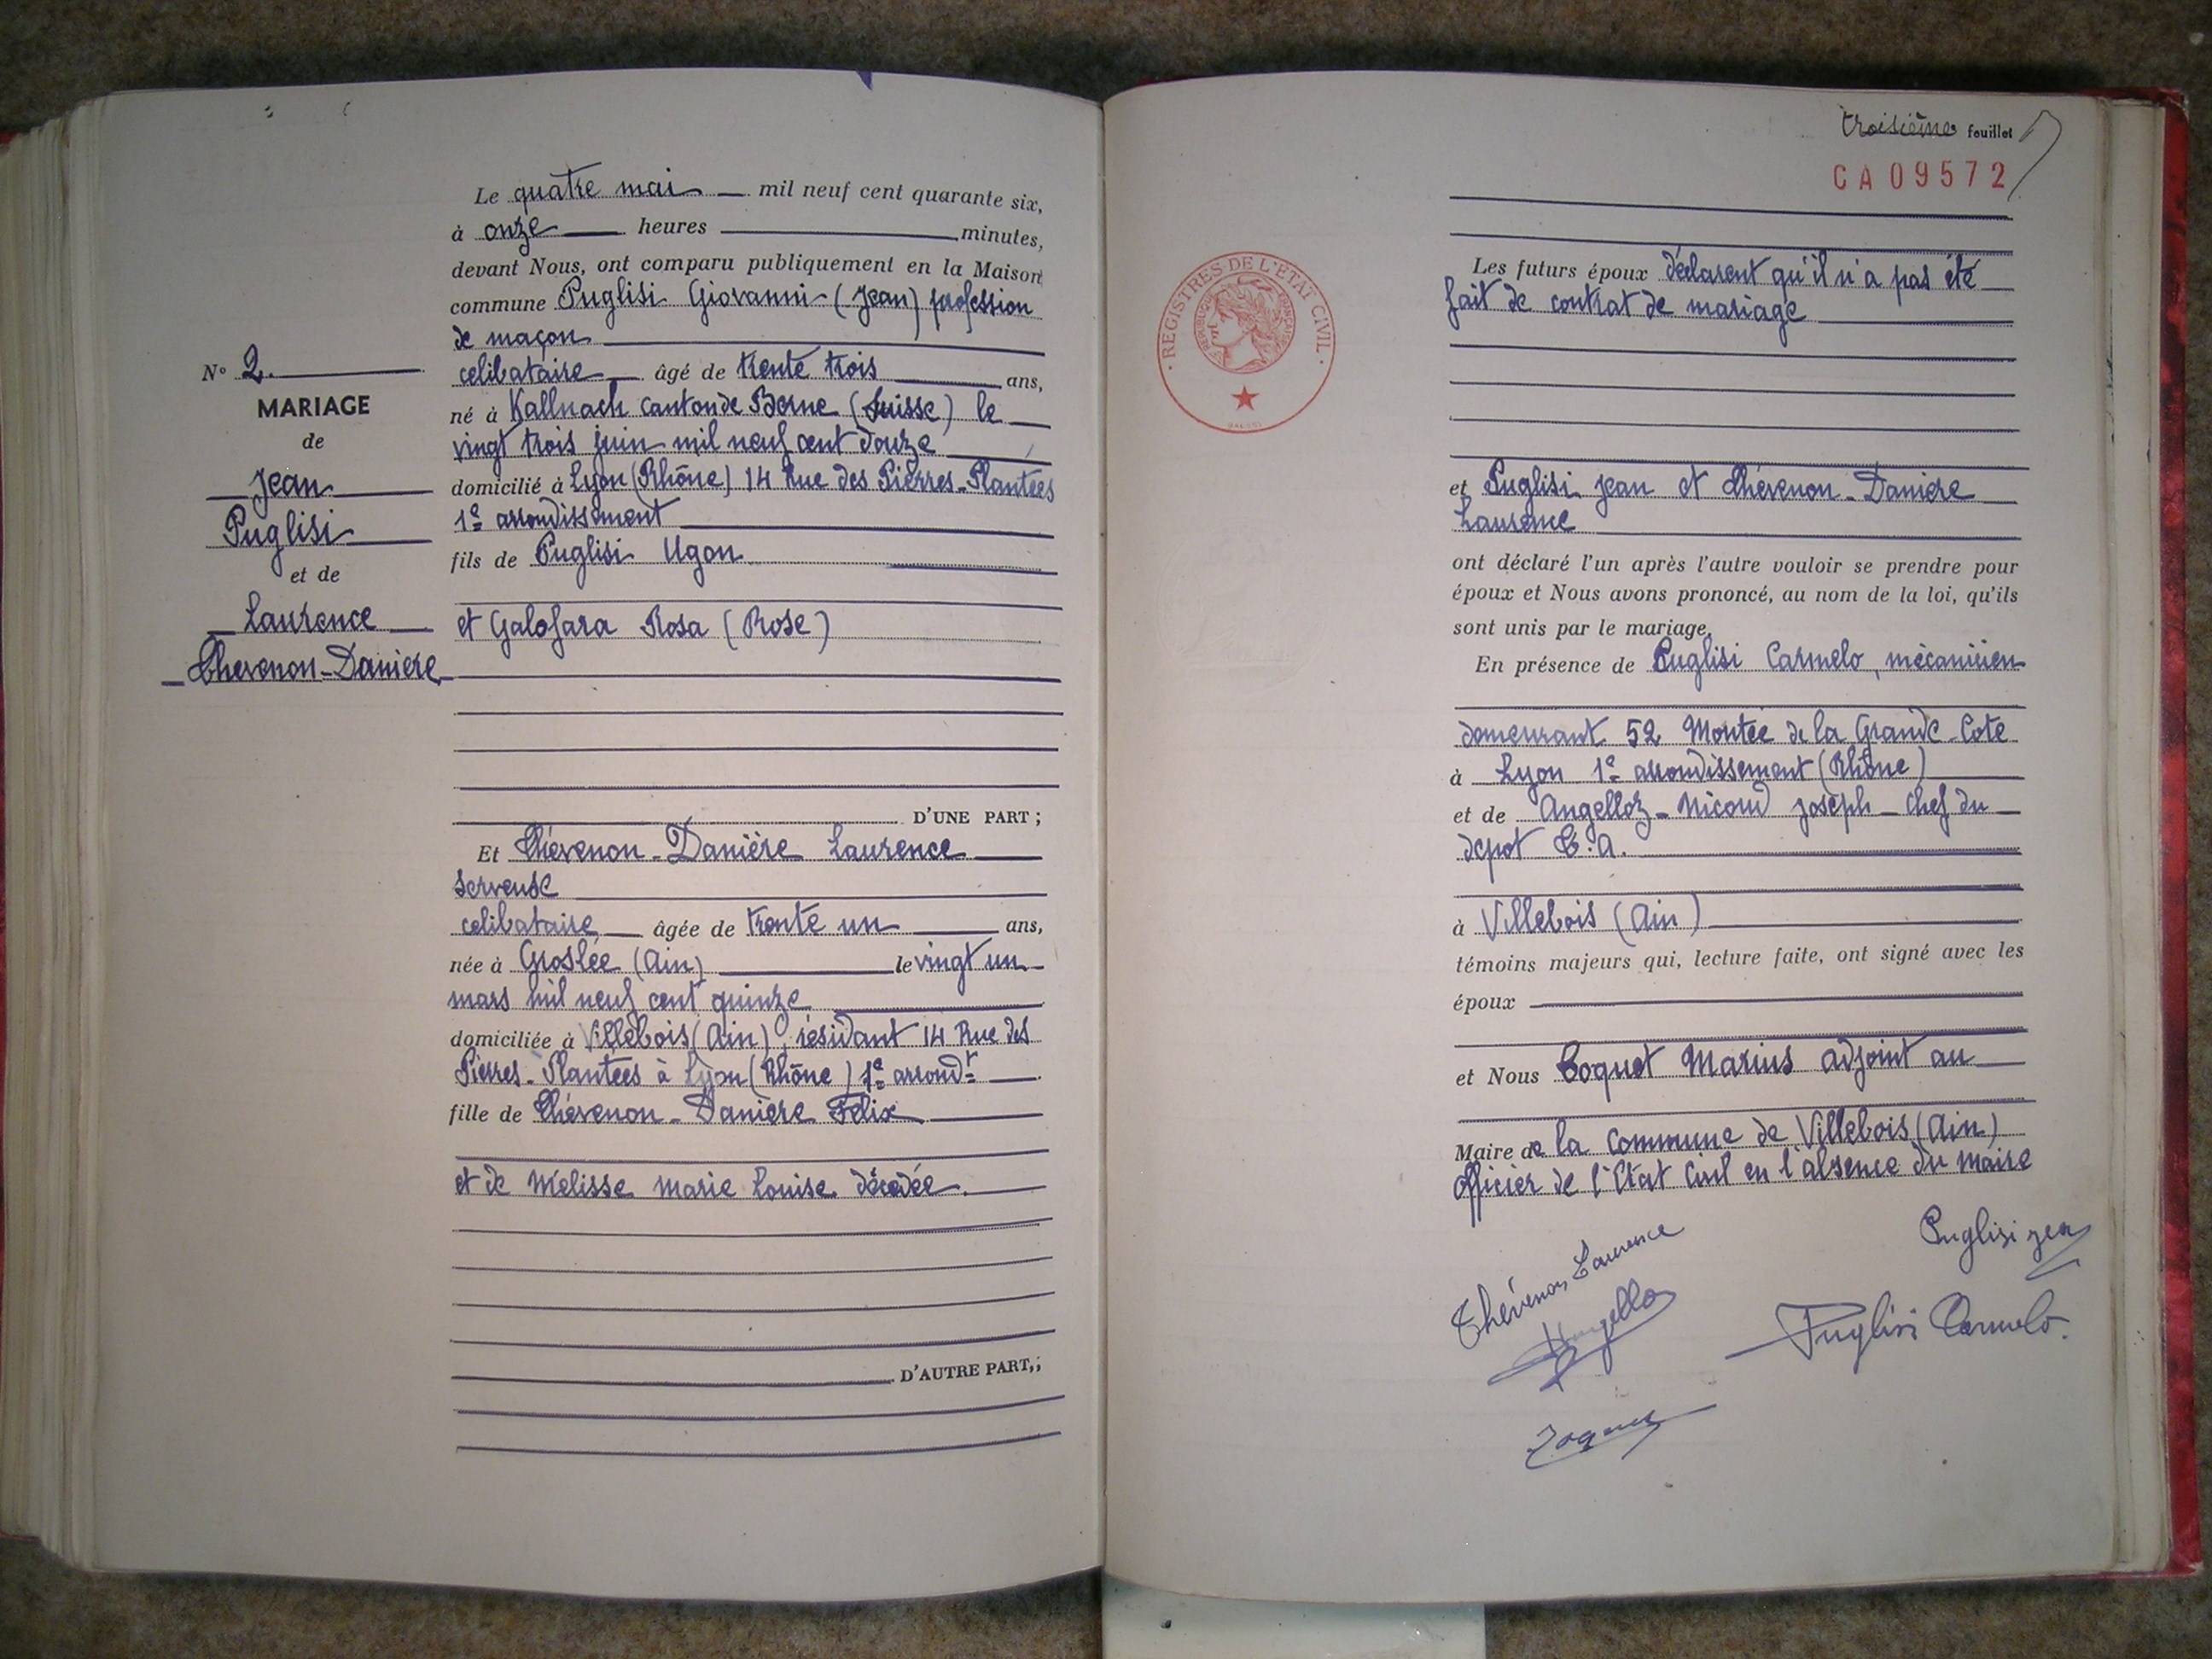 Le quatre mai mil neuf cent quarante six,
à onze heures minutes,
devant Nous, ont comparu publiquement en la Maison
commune Puglisi Giovanni (Jean) profession
de maçon
celibataire âgé de trente trois ans,
né à Kallnach canton de Berne (Suisse) le
vingt trois juin mil neuf cent douze
domicilié à Lyon (Rhône) 14 Rue des Pierres-Plantées
1e arrondissement
fils de Puglisi Ugon
et Galofara Rosa (Rose)
D'UNE PART ;
N° 2.
MARIAGE
de
Jean
Puglisi
et de
Laurence
Thevenon-Daniere
Et Thévenon-Danière Laurence
serveuse
celibataire âgée de trente un ans,
née à Groslée (Ain) le vingt un
mars mil neuf cent quinze
domiciliée à Villebois (Ain), résidant 14 Rue des
Pierres-Plantées à Lyon (Rhône) 1e arrondt
fille de Thévenon-Daniere Félix
et de Mélisse Marie Louise décédée.
D'AUTRE PART,;
troisième feuillet
CA09572
REGISTRES DE L'ETAT CIVIL
REPUBLIQUE FRANÇAISE
Les futurs époux déclarent qu'il n'a pas été
fait de contrat de mariage
et Puglisi Jean et Thévenon-Daniere
Laurence
ont déclaré l'un après l'autre vouloir se prendre pour
époux et Nous avons prononcé, au nom de la loi, qu'ils
sont unis par le mariage.
En présence de Puglisi Carmelo, mécanicien
demeurant 52 Montée de la Grande-Cote
à Lyon 1e arrondissement (Rhône)
et de Angelloz-Nicoud Joseph-chef du
depot T.A.
à Villebois (Ain)
témoins majeurs qui, lecture faite, ont signé avec les
époux
et Nous Coquet Marius adjoint au
Maire de la commune de Villebois (Ain)
officier de l'Etat Civil en l'absence du maire
Thévenon Laurence
Puglisi Jean
Angelloz
Puglisi Carmelo.